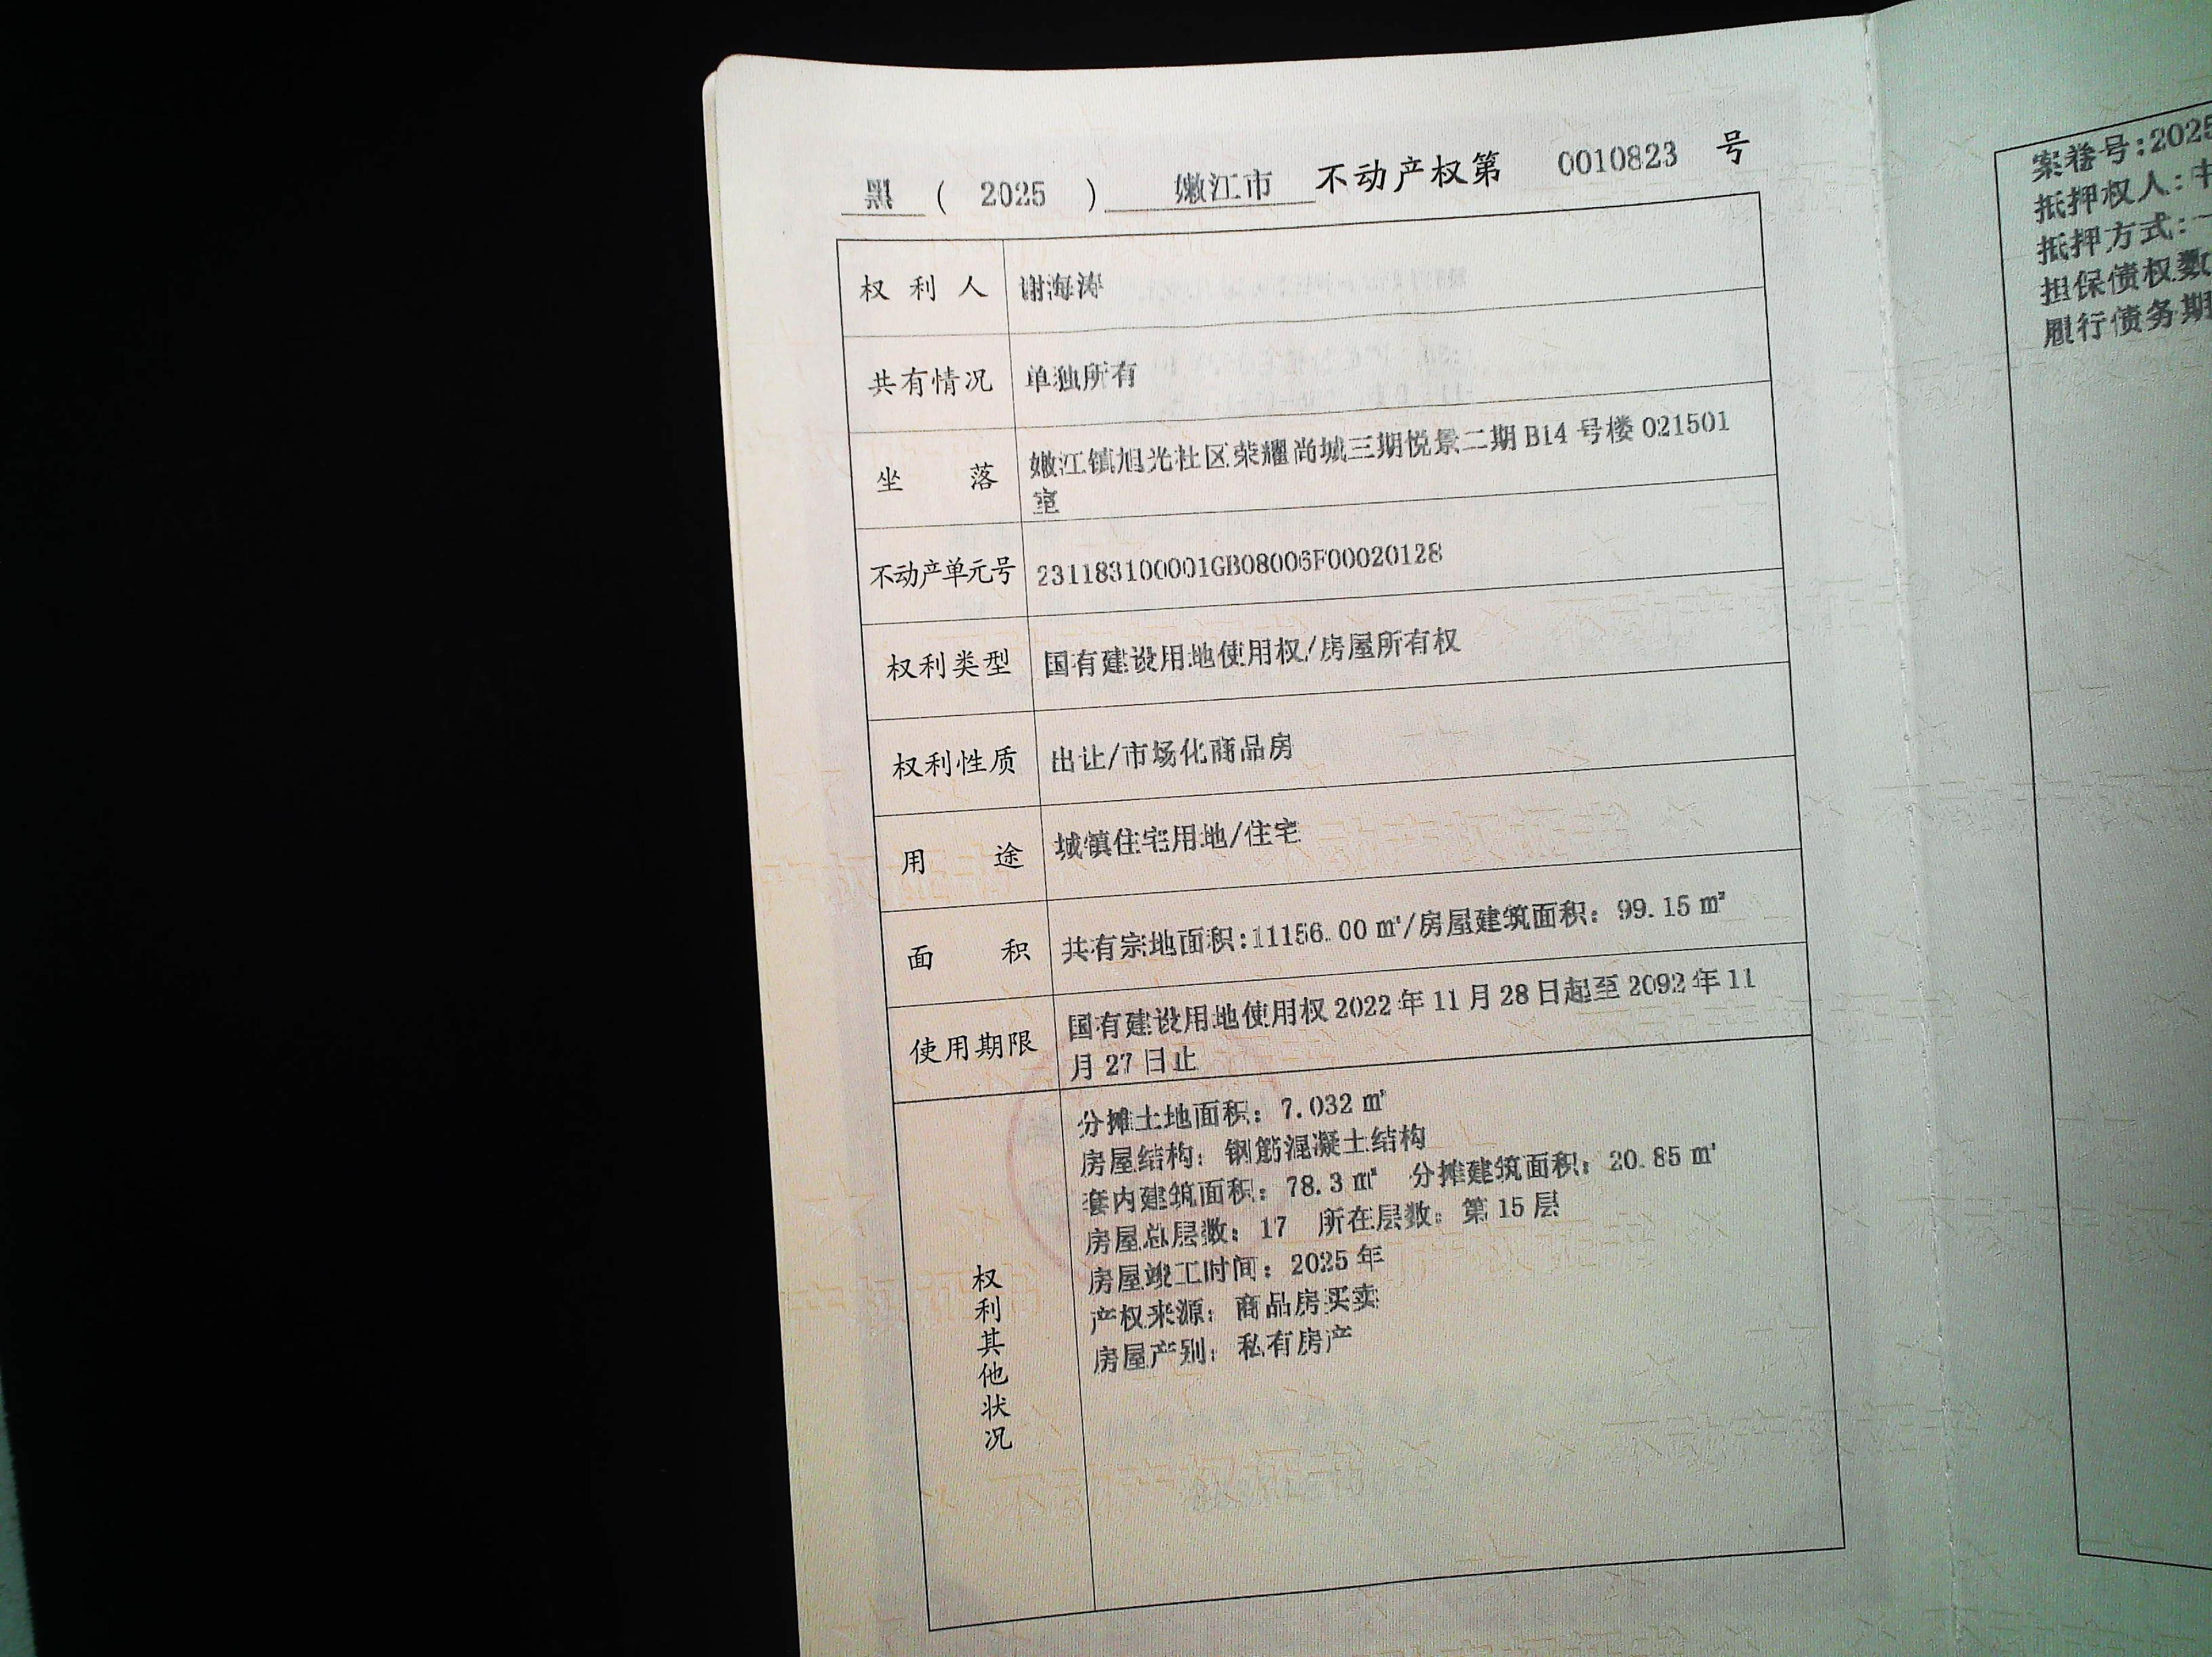 黑 ( 2025 ) 嫩江市 不动产权第 0010823 号
权利人 谢海涛
共有情况 单独所有
坐落 嫩江镇旭光社区荣耀尚城三期悦景二期B14号楼021501
室
不动产单元号 231183100001GB08006F00020128
权利类型 国有建设用地使用权/房屋所有权
权利性质 出让/市场化商品房
用途 城镇住宅用地/住宅
面积 共有宗地面积:11156.00㎡/房屋建筑面积:99.15㎡
使用期限 国有建设用地使用权2022年11月28日起至2092年11
月27日止
权利其他状况
分摊土地面积:7.032㎡
房屋结构:钢筋混凝土结构
套内建筑面积:78.3㎡ 分摊建筑面积:20.85㎡
房屋总层数:17 所在层数:第15层
房屋竣工时间:2025年
产权来源:商品房买卖
房屋产别:私有房产
案卷号:2025
抵押权人:中
抵押方式:一
担保债权数
履行债务期